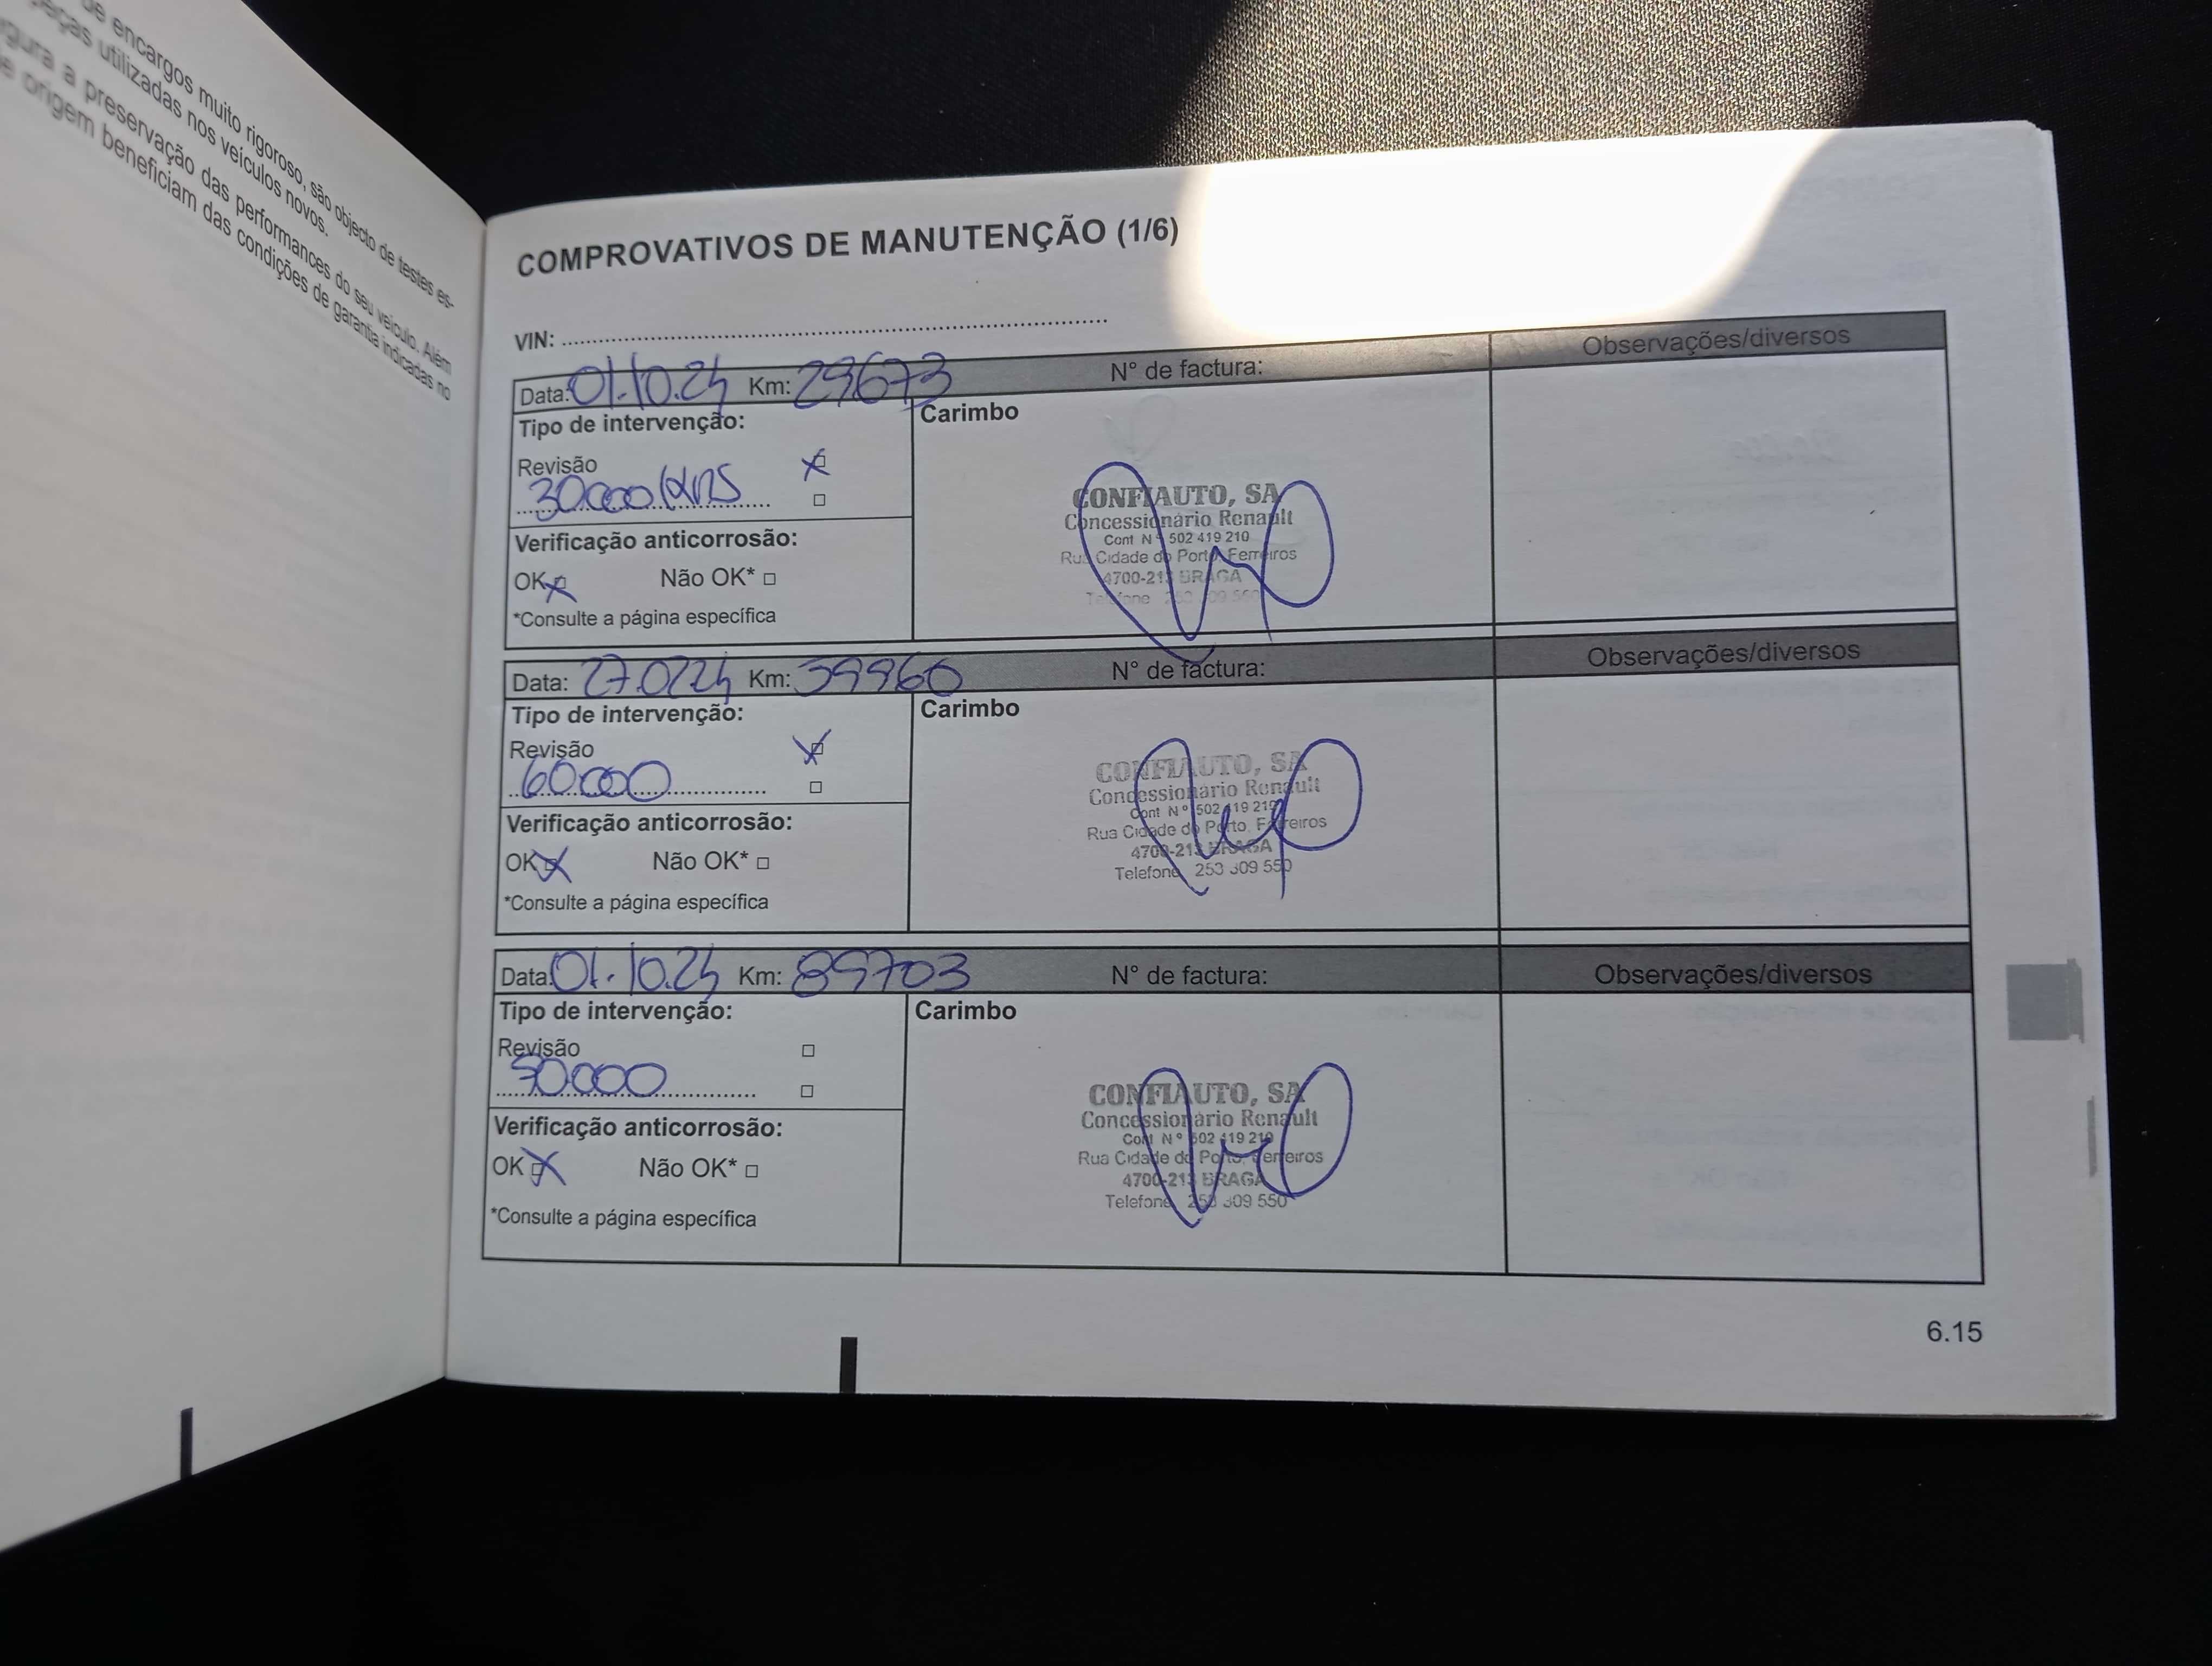 de encargos muito rigoroso, são objecto de testes es-
peças utilizadas nos veículos novos.
gura a preservação das performances do seu veículo. Além
e origem beneficiam das condições de garantia indicadas no
COMPROVATIVOS DE MANUTENÇÃO (1/6)
VIN:
Data: 01.10.24 Km: 29673 N° de factura: Observações/diversos
Tipo de intervenção: Carimbo
Revisão
30000 kms
CONFIAUTO, SA
Concessionário Renault
Cont Nº 502 419 210
Rua Cidade do Porto, Ferreiros
4700-213 BRAGA
Telefone 253 309 550
Verificação anticorrosão:
OK Não OK*
*Consulte a página específica
Data: 27.02.24 Km: 39960 N° de factura: Observações/diversos
Tipo de intervenção: Carimbo
Revisão
60000
CONFIAUTO, SA
Concessionário Renault
Cont Nº 502 419 210
Rua Cidade do Porto, Ferreiros
4700-213 BRAGA
Telefone 253 309 550
Verificação anticorrosão:
OK Não OK*
*Consulte a página específica
Data: 01.10.24 Km: 89703 N° de factura: Observações/diversos
Tipo de intervenção: Carimbo
Revisão
90000
CONFIAUTO, SA
Concessionário Renault
Cont Nº 502 419 210
Rua Cidade do Porto, Ferreiros
4700-213 BRAGA
Telefone 253 309 550
Verificação anticorrosão:
OK Não OK*
*Consulte a página específica
6.15